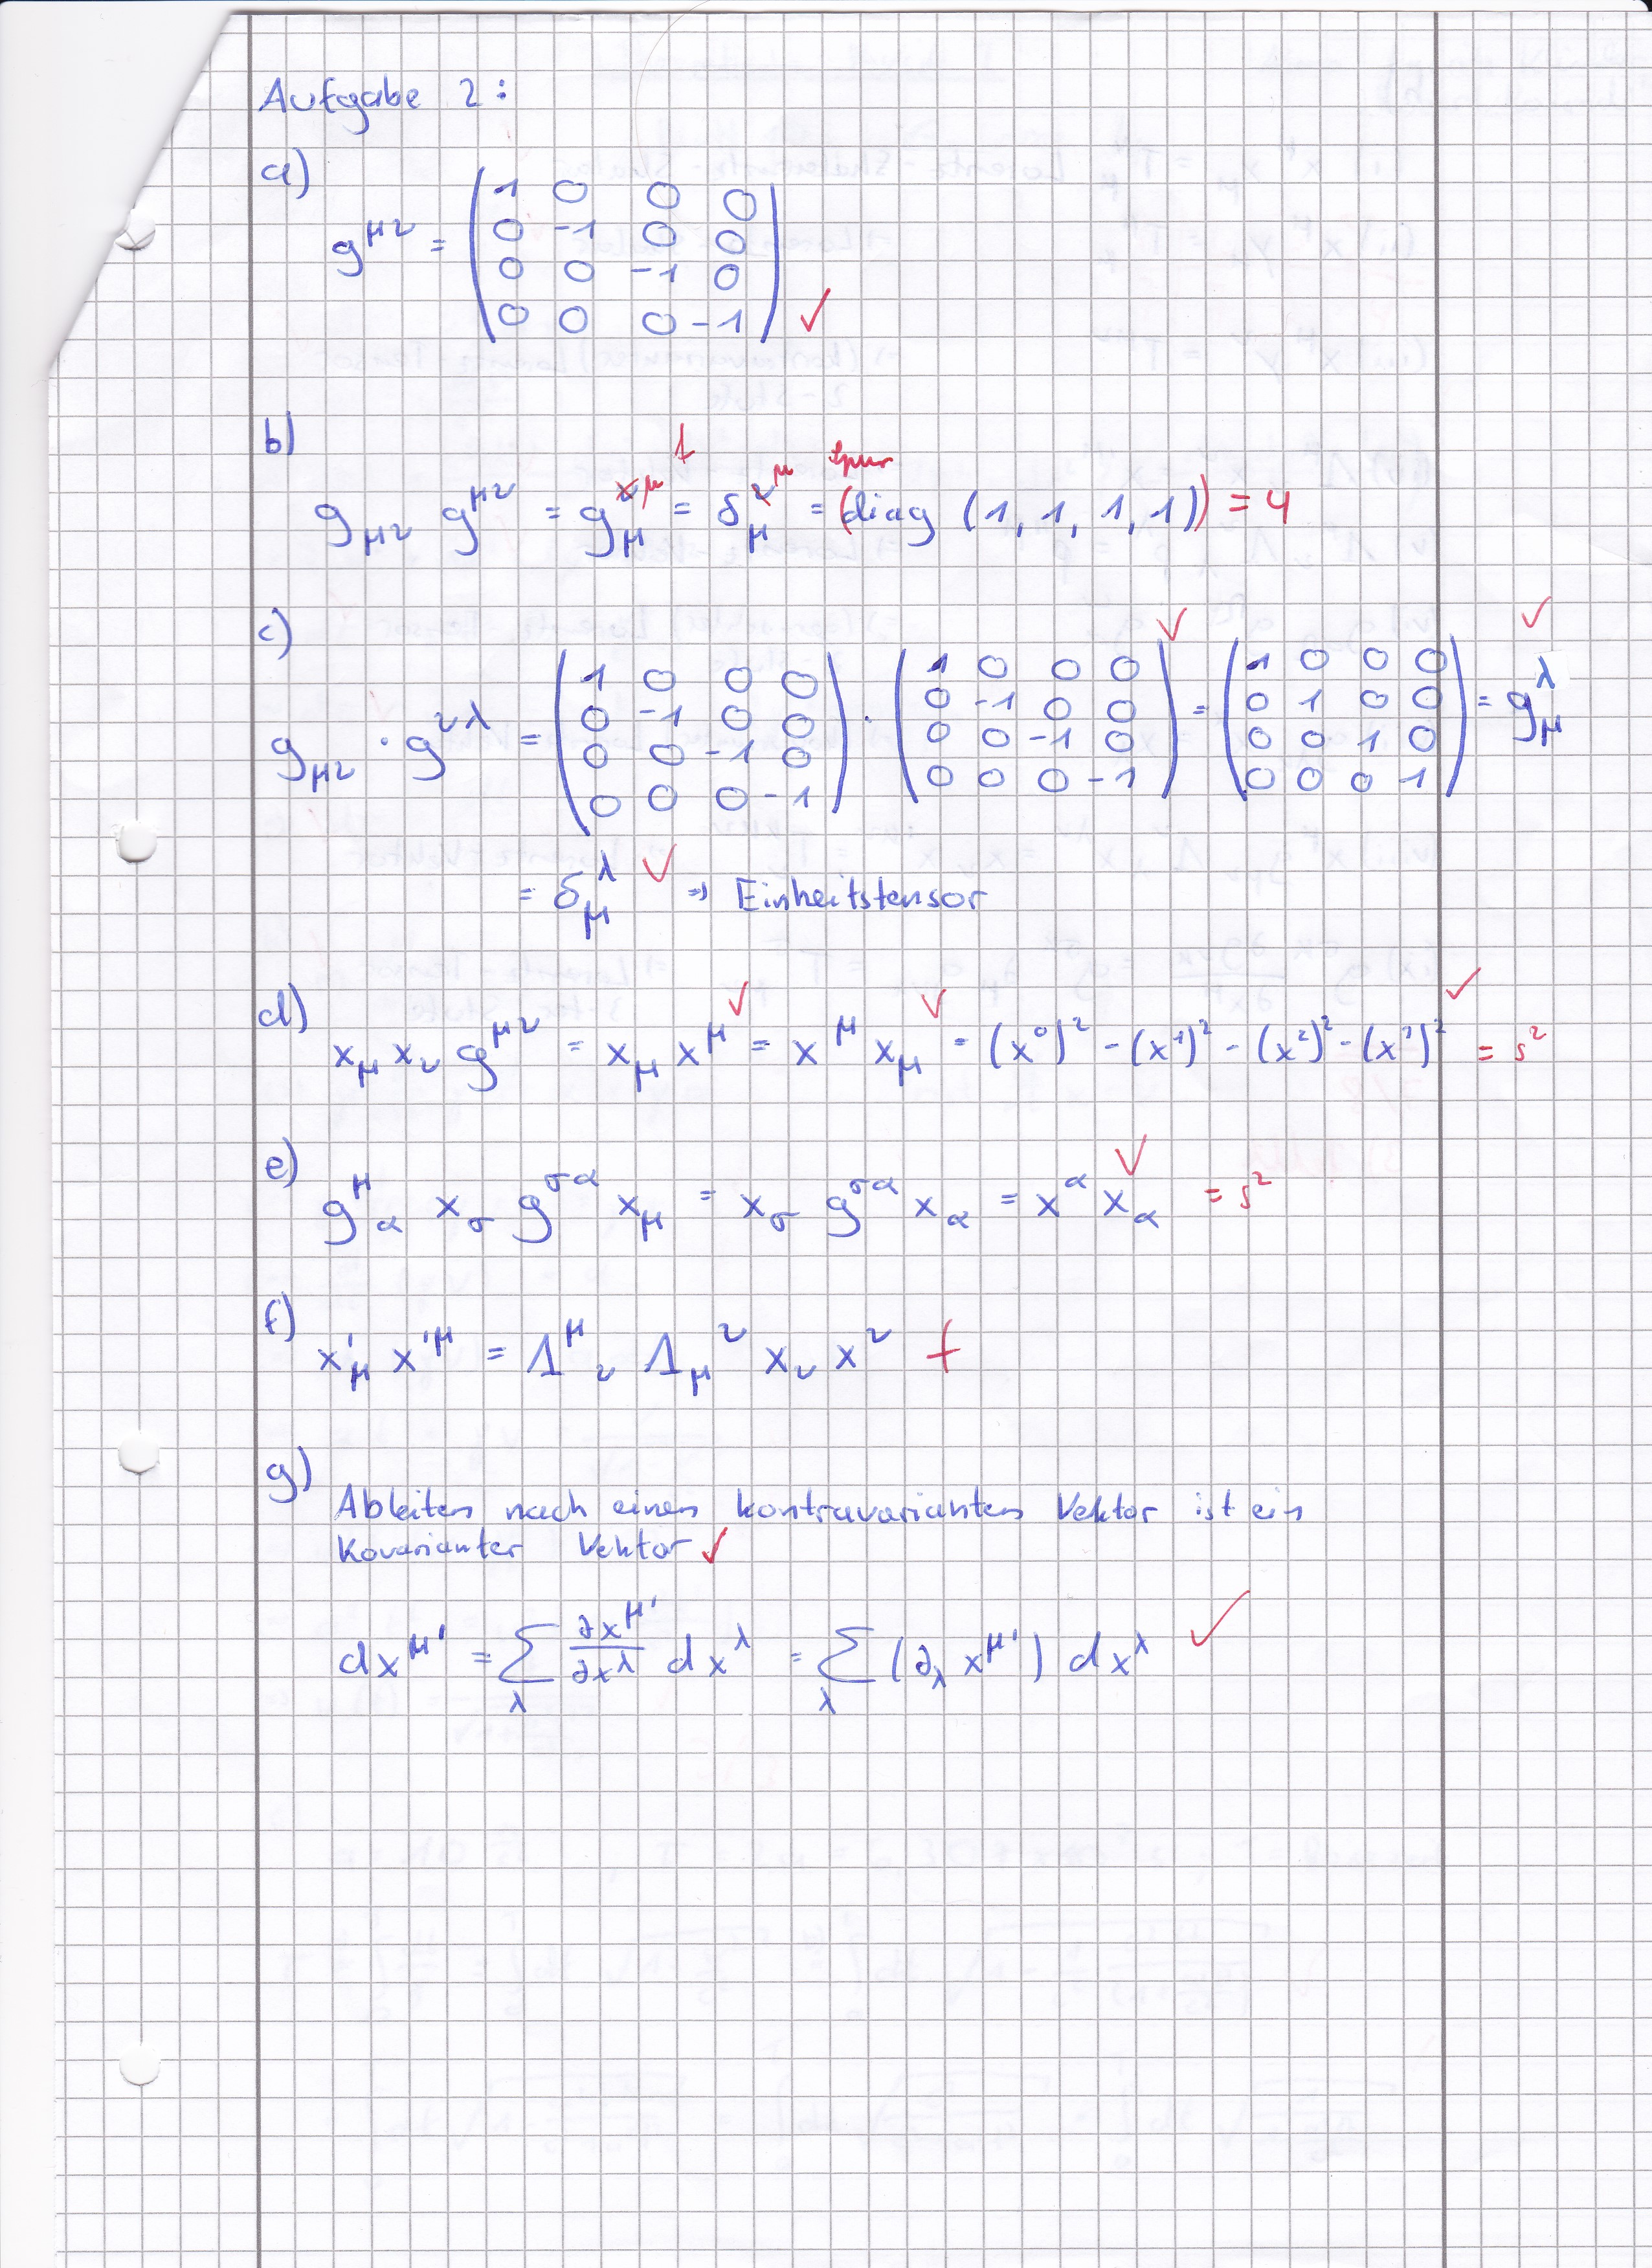 Aufgabe 2:
a)
g^{μν} = \begin{pmatrix} 1 & 0 & 0 & 0 \\ 0 & -1 & 0 & 0 \\ 0 & 0 & -1 & 0 \\ 0 & 0 & 0 & -1 \end{pmatrix} ✓
b)
f
g_{μν} g^{μν} = g_μ^{ν μ} = δ_μ^{ν μ} = Spur (diag (1, 1, 1, 1)) = 4
c)
g_{μν} · g^{νλ} = \begin{pmatrix} 1 & 0 & 0 & 0 \\ 0 & -1 & 0 & 0 \\ 0 & 0 & -1 & 0 \\ 0 & 0 & 0 & -1 \end{pmatrix} · \begin{pmatrix} 1 & 0 & 0 & 0 \\ 0 & -1 & 0 & 0 \\ 0 & 0 & -1 & 0 \\ 0 & 0 & 0 & -1 \end{pmatrix} ✓ = \begin{pmatrix} 1 & 0 & 0 & 0 \\ 0 & 1 & 0 & 0 \\ 0 & 0 & 1 & 0 \\ 0 & 0 & 0 & 1 \end{pmatrix} = g_μ^λ ✓
= δ_μ^λ ✓ ⇒ Einheitstensor
d) x_μ x_ν g^{μν} = x_μ x^μ ✓ = x^μ x_μ ✓ = (x^0)^2 - (x^1)^2 - (x^2)^2 - (x^3)^2 ✓ = s^2
e) g^μ_α x_σ g^{σα} x_μ = x_σ g^{σα} x_α = x^α x_α ✓ = s^2
f) x'_μ x'^μ = Λ^μ_ν Λ_μ^ν x_ν x^ν f
g) Ableiten nach einen kontravarianten Vektor ist ein
kovarianter Vektor ✓
dx^{μ'} = \sum_λ \frac{∂x^{μ'}}{∂x^λ} dx^λ = \sum_λ (∂_λ x^{μ'}) dx^λ ✓